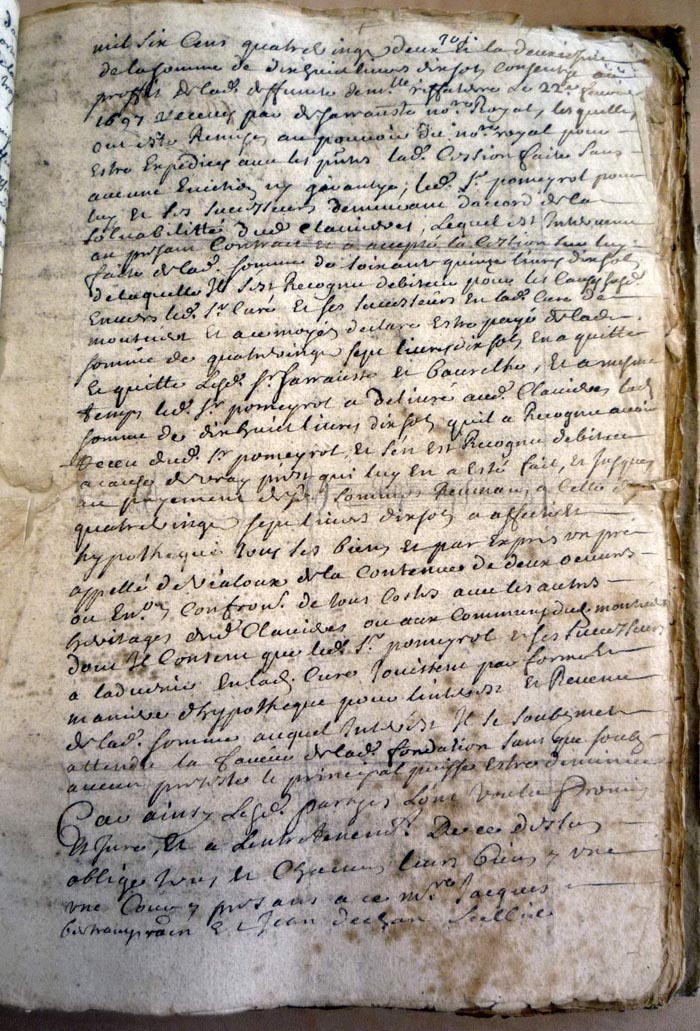 701.
mil six cens quatre vingt deux et la deuxieme
de la somme de dix huit livres dix sols consentie au
proffit de lad. deffuncte dem.lle le 22.e
1697 receue par de farrauste no.re Royal, lesquelles
ont esté remises au pouvoir du no.re royal pour
estre expediees avec les pntes lad. cession faite sans
aucune eviction ny garantye; led. s.r pomeyrol pour
luy et ses successeurs demeurant daccord de la
solvabilitte dud. Clavieres, lequel est intervenu
au present contrait et a accepté la cession sur luy
faite de lad. somme de soixante quinze livres dix sols
de laquelle il sest recognu debiteur pour les causes susd.
envers led. s.r curé et ses successeurs en lad. cure de
et au moyen declare estre payé de lad.
somme de quatre vingt sept livres dix sols en a quitté
et quitte lesd. s.r farrauste et et a mesme
temps led. s.r pomeyrol a delivré aud. Clavieres lad.
somme de dix huit livres dix sols quil a recognu avoir
receu dud. s.r pomeyrol, et sen est recognu debiteur
a cause de vray prest qui luy en a esté fait, et jusques
au payement desd. sommes revenant a celle de
quatre vingt sept livres dix sols a affecté et
hypothequé tous ses biens et par exprès un pré
appellé de de la contenue de deux oeuvres
ou env.on, confron.t de tous costés avec les autres
heritages dud. Clavieres ou aux communs du
dont il consent que led. s.r pomeyrol et ses successeurs
a ladvenir en lad. cure jouissent par forme et
maniere dhypotheque pour linterest et revenu
de lad. somme auquel interest il se soubzmet
attendu la faveur de lad. fondation sans que soubz
aucun pretexte le principal puisse estre diminué
Car ainsy lesd. partyes lont voulu promis
et juré, et a lentretenem.t de ce dessus
obligé tous et chacuns leurs biens
une cour presans a ce m.re Jacques
et Jean